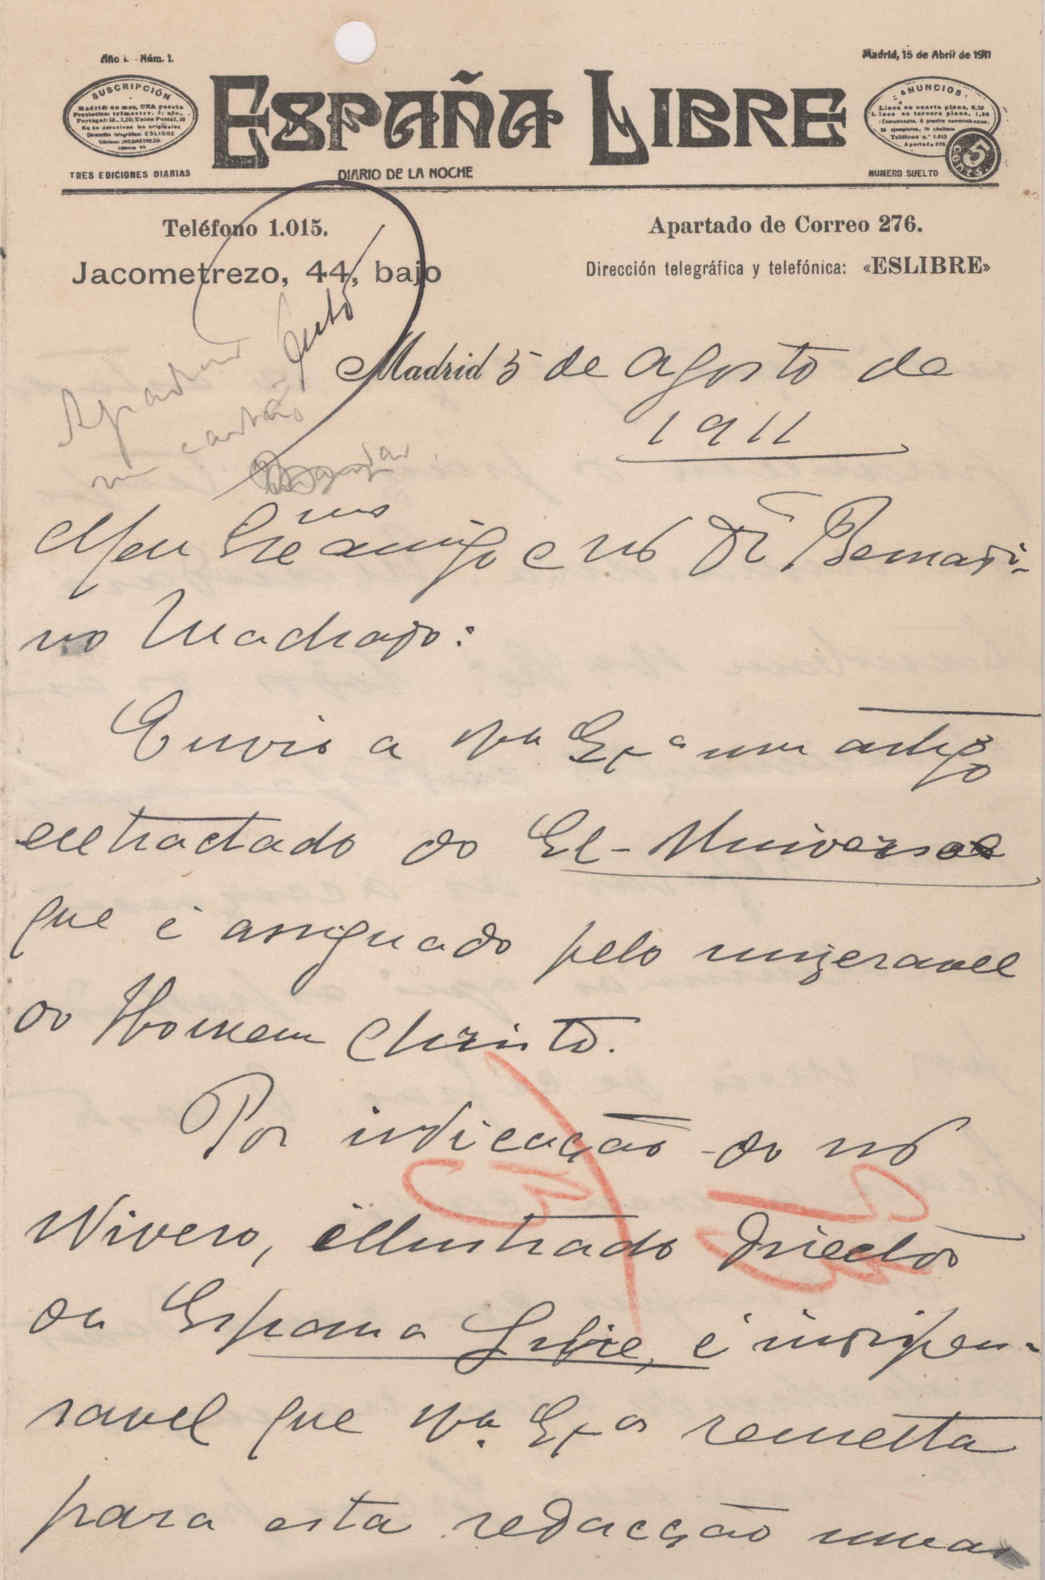 Año I. - Núm. 1.
Madrid, 15 de Abril de 1911
SUSCRIPCIÓN
ANUNCIOS
ESPAÑA LIBRE
5 CÉNTS.
TRES EDICIONES DIARIAS
DIARIO DE LA NOCHE
NUMERO SUELTO
Teléfono 1.015.
Apartado de Correo 276.
Jacometrezo, 44, bajo
Dirección telegráfica y telefónica: «ESLIBRE»
Madrid 5 de Agosto de
1911
Meu amigo e Dr Bernardi-
no Machado:
Envio a Vª Exª um artigo
extractado do El-Universo
que é assignado pelo mizeravel
do Homem Christo.
Por indicação do
Vivero, illustrado Director
da Espana Libre, é indispen-
savel que Vª Exª remetta
para esta redacção umas